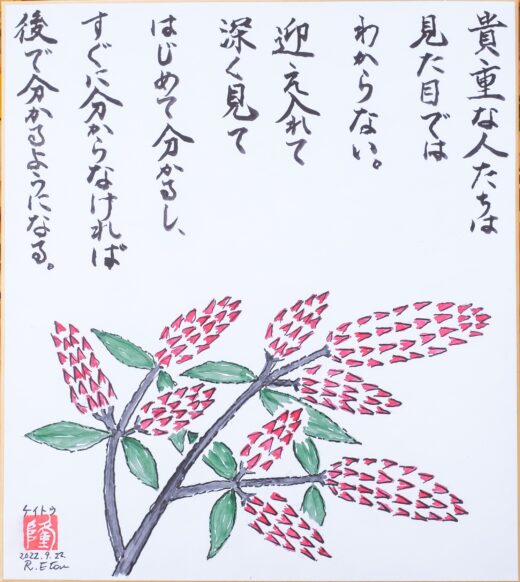 貴重な人たちは
見た目では
わからない。
迎え入れて
深く見て
はじめて分かるし、
すぐに分からなければ
後で分かるようになる。
ケイトウ
隆
2022.9.22
R.Etou